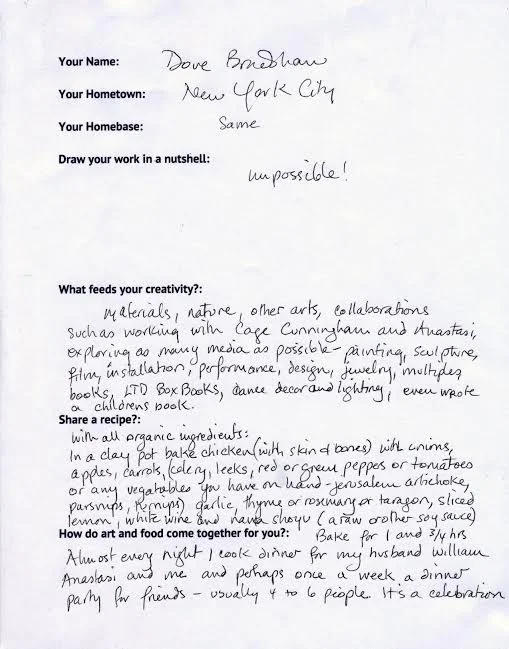 Your Name: Dove Bradshaw
Your Hometown: New York City
Your Homebase: Same
Draw your work in a nutshell:
impossible!
What feeds your creativity?:
materials, nature, other arts, collaborations
such as working with Cage Cunningham and Anastasi,
exploring as many media as possible - painting, sculpture,
film, installation, performance, design, jewelry, multiples
books, LTD Box Books, dance decor and lighting, even wrote
a childrens book.
Share a recipe?:
with all organic ingredients:
In a clay pot bake chicken (with skin & bones) with onions,
apples, carrots, (celery, leeks, red or green peppers or tomatoes
or any vegatables you have on hand - jerusalem artichoke,
parsnips, turnips) garlic, thyme or rosemary or taragon, sliced
lemon, white wine and nama shoyu (a raw or other soy sauce)
Bake for 1 and 3/4 hrs
How do art and food come together for you?:
Almost every night I cook dinner for my husband William
Anastasi and me and perhaps once a week a dinner
party for friends - usually 4 to 6 people. It's a celebration